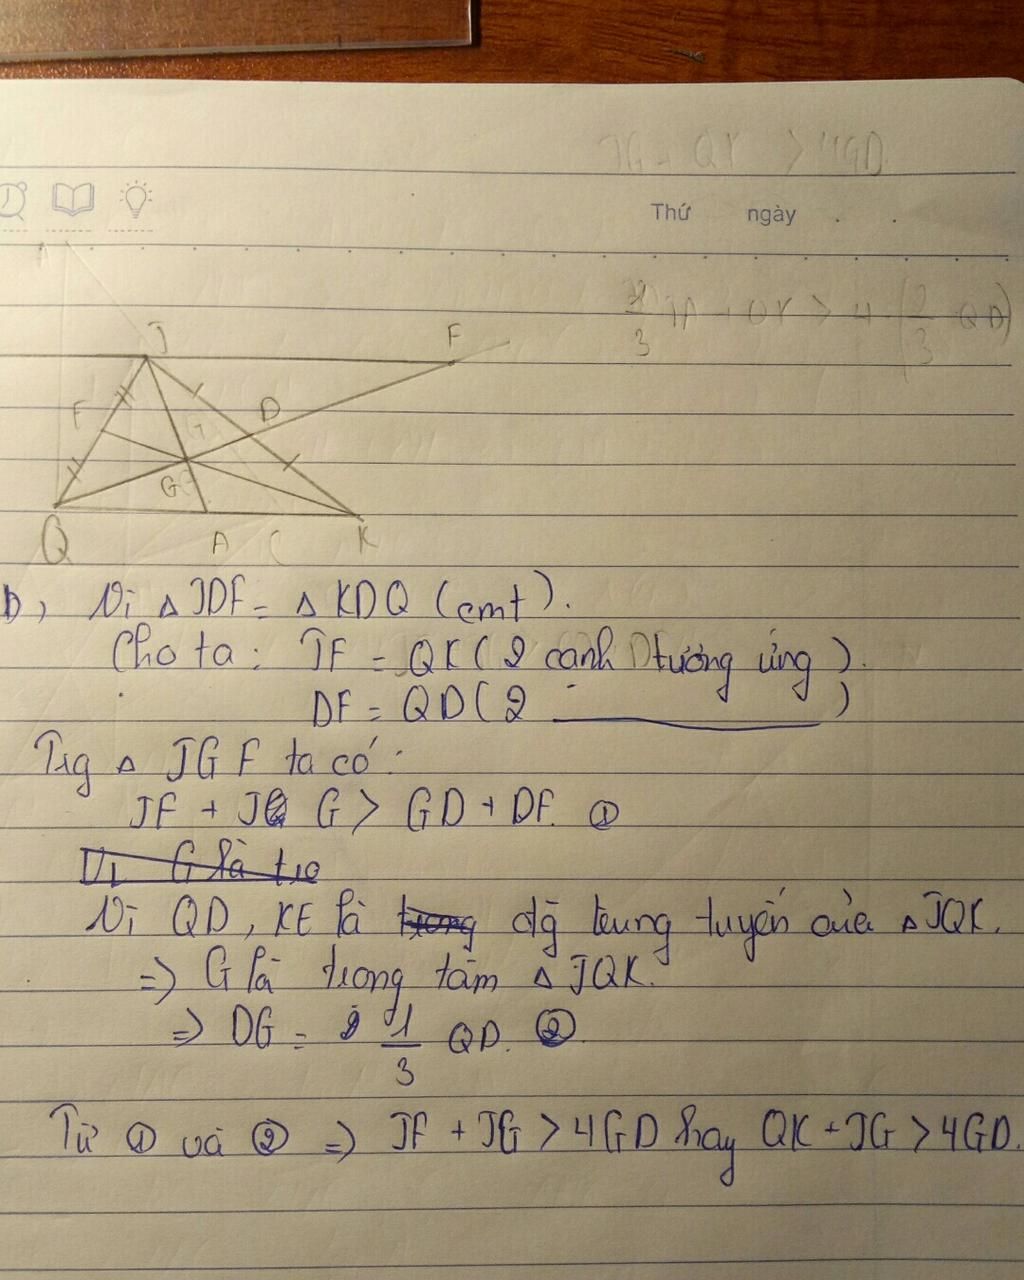 Thứ ngày
J F
F D
G
Q A C K
b, Vì △ JDF = △ KDQ (cmt).
Cho ta: JF = QK (2 cạnh tương ứng).
DF = QD (2 ——— )
Trg △ JGF ta có:
JF + JG > GD + DF. ①
Vì G là trọ
Vì QD, KE là trong đg trung tuyến của △ JQK.
=> G là trọng tâm △ JQK.
=> DG = 1/3 QD. ②
Từ ① và ② => JF + JG > 4GD hay QK + JG > 4GD.